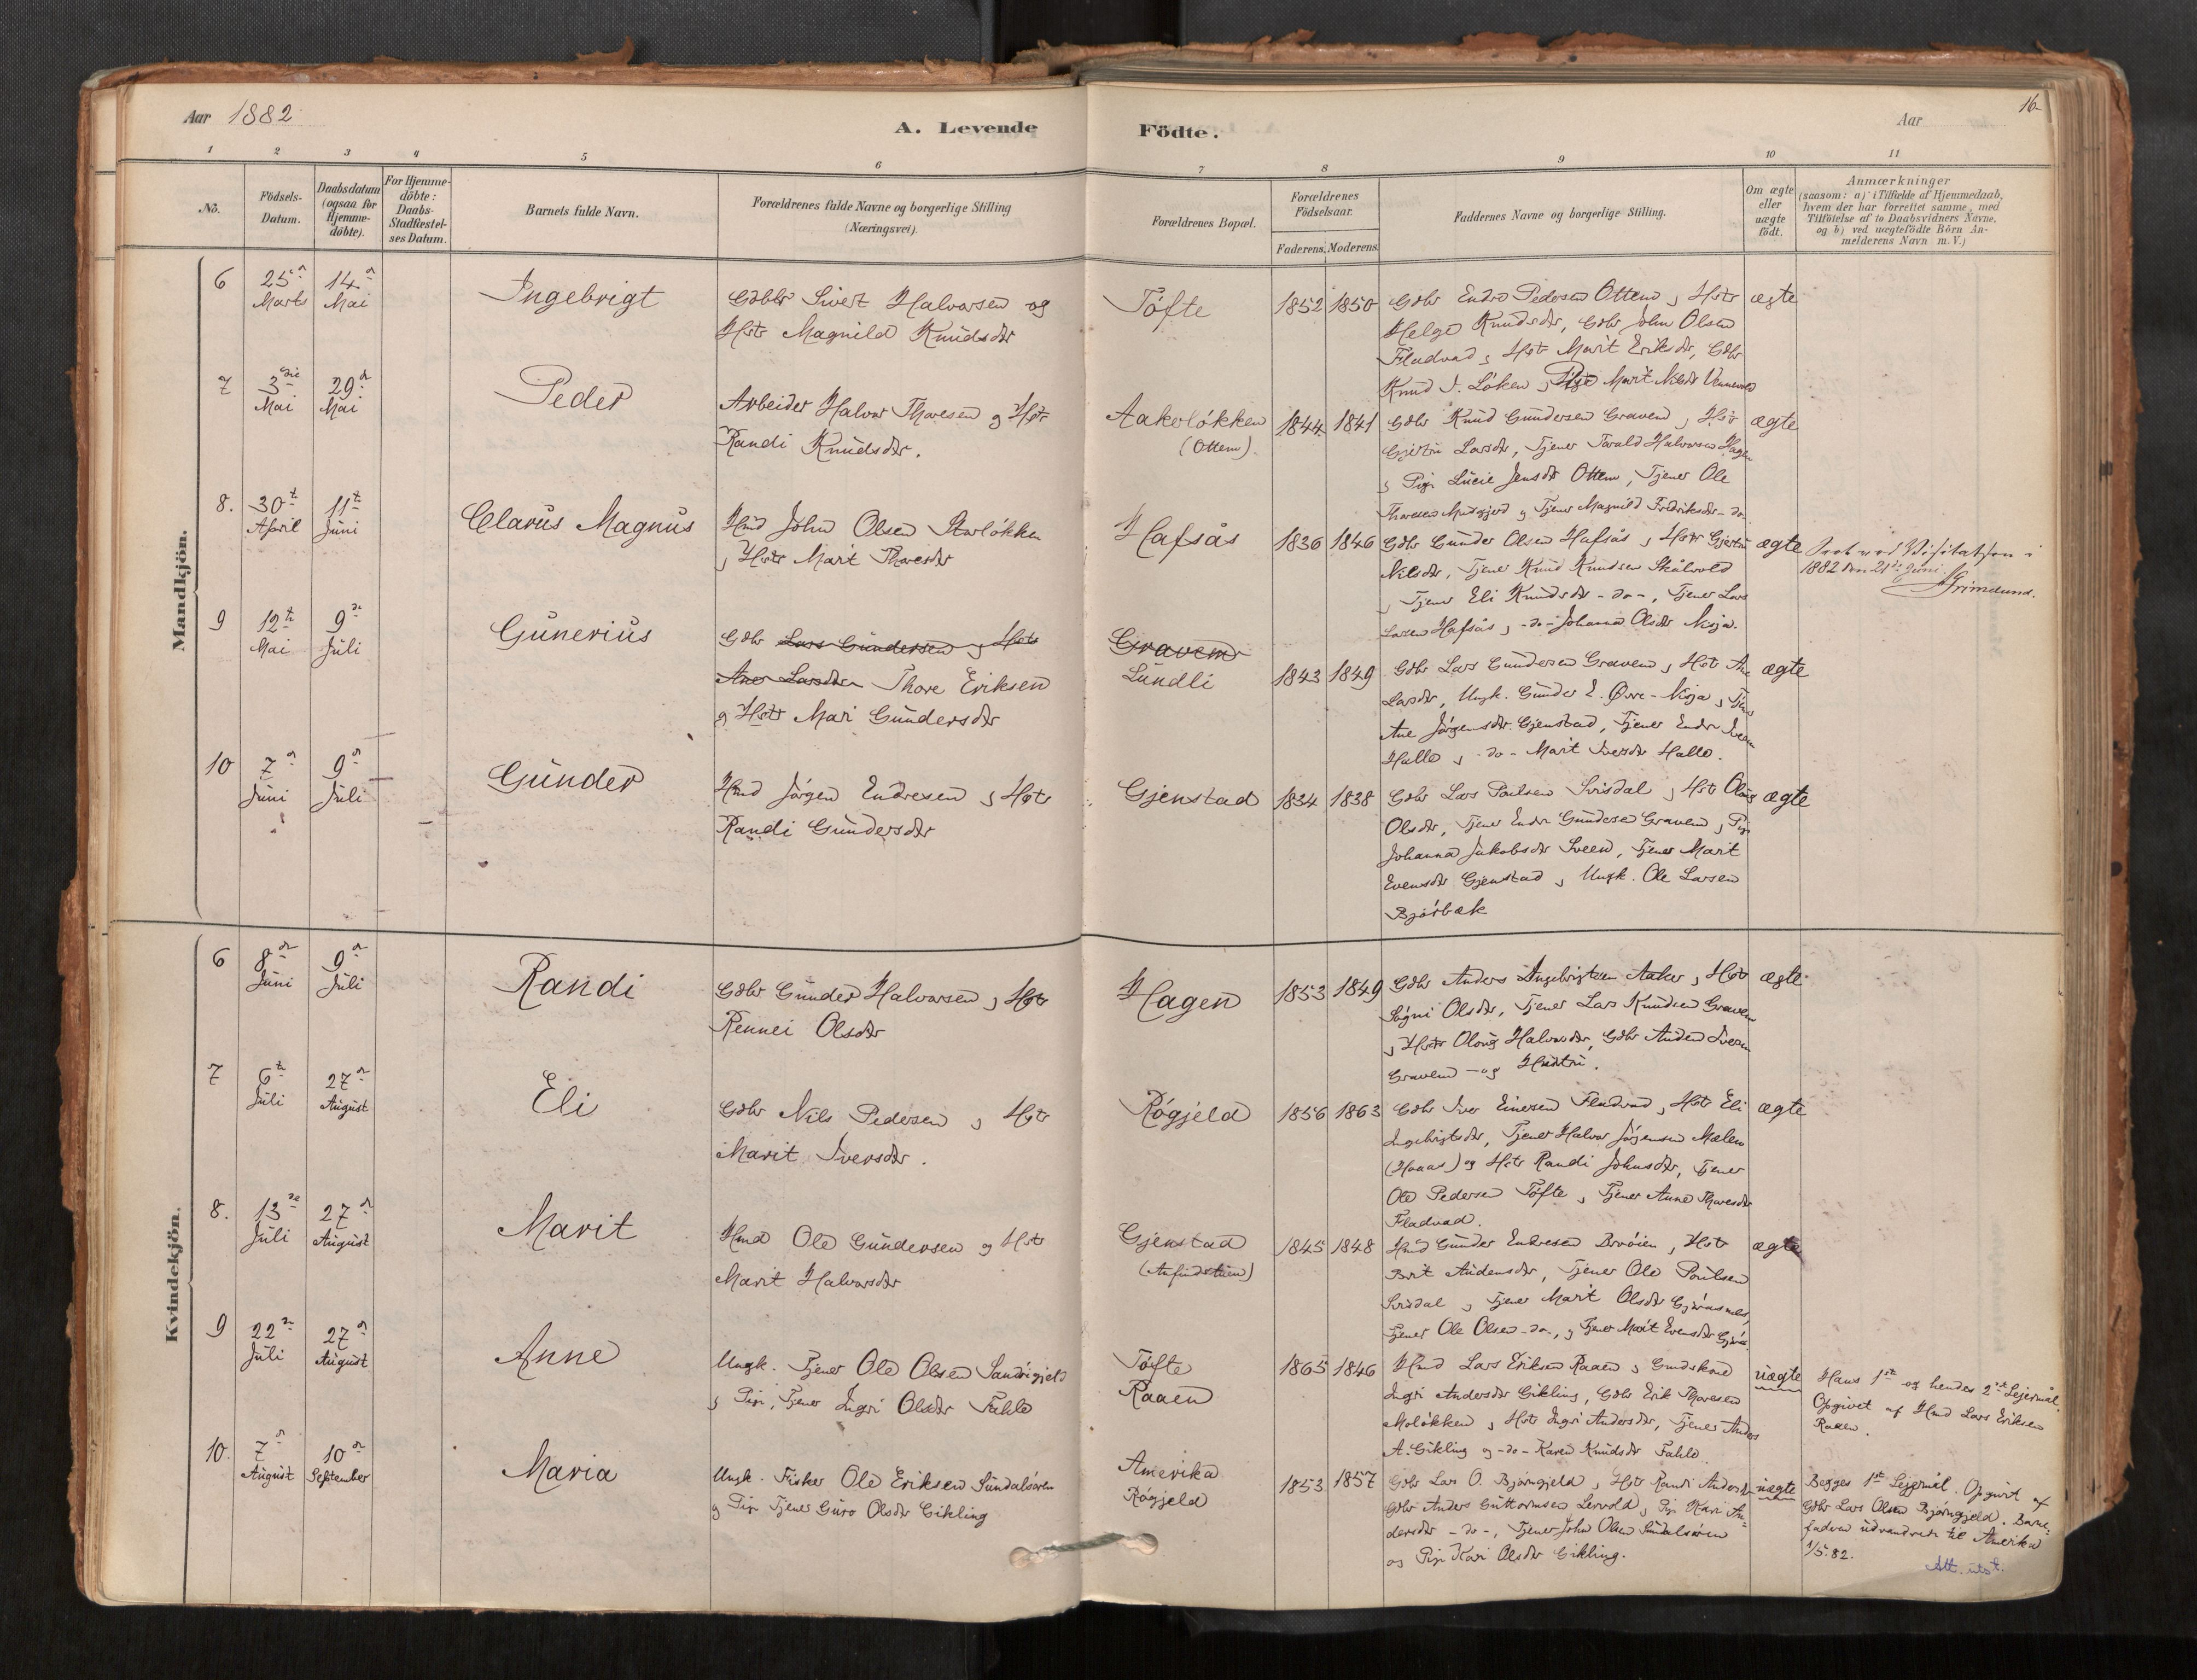 Aar 1882
A. Levende
Födte.
Aar
16
1
2
3
4
5
6
7
8
9
10
11
No.
Födsels-
Datum.
Daabsdatum
(ogsaa for
Hjemme-
döbte).
For Hjemme-
döbte:
Daabs-
Stadfæstel-
ses Datum.
Barnets fulde Navn.
Forældrenes fulde Navne og borgerlige Stilling
(Næringsvei).
Forældrenes Bopæl.
Forældrenes
Födselsaar.
Faderens. Moderens.
Faddernes Navne og borgerlige Stilling.
Om ægte
eller
uægte
födt.
Anmærkninger
(saasom: a) i Tilfælde af Hjemmedaab,
hvem der har forrettet samme, med
Tilföielse af to Daabsvidners Navne,
og b) ved uægtefödte Börn An-
melderens Navn m. V.)
Mandkjön.
6
25de
Marts
14de
Mai
Ingebrigt
Gdbr Sivert Halvorsen og
Hstr Magnild Knudsdtr
Töfte
1852 1850
Gdbr Endre Pedersen Ottem, Hstr
Helge Knudsdtr, Gdbr John Olsen
Fladvad, Hstr Marit Eriksdtr, Gdbr
Knud I. Löken, Pige Marit Nilsdtr
ægte
7
3die
Mai
29de
Mai
Peder
Arbeider Halvor Thoresen og Hstr
Randi Knudsdtr.
Aakerlökken
(Ottem).
1844 1841
Gdbr Knud Gundersen Gravem, Hstr
Gjertru Larsdtr, Tjener Tarald Halvorsen Hagen
, Pige Lucie Jensdtr Ottem, Tjener Ole
Thoresen og Tjener Magnild Fredriksdtr -do-
ægte
8.
30te
April
11te
Juni
Clarus Magnus
Hmd John Olsen Storlökken
, Hstr Marit Thoresdtr
Hafsås
1836 1846
Gdbr Gunder Olsen Hafsås, Hstr Gjertru
Nilsdtr, Tjener Knud Knudsen Skålvold
, Tjener Eli Knudsdtr -do-, Tjener Lars
Larsen Hafsås, -do- Johanna Olsdtr Nisja.
ægte
Seet ved Visitatsen i
1882 den 21de Juni.
Grimelund.
9
12te
Mai
9de
Juli
Gunerius
Gdbr Lars Gundersen og Hstr
Ane Larsdtr Thore Eriksen
og Hstr Mari Gundersdtr
Gravem
Lundli
1843 1849
Gdbr Lars Gundersen Gravem, Hstr Ane
Larsdtr, Ungk. Gunder E. Øvre-Nisja, Tjener
Ane Jörgensdtr Gjenstad, Tjener Endre Iversen
Halle, -do- Marit Iversdtr Halle.
ægte
10
7de
Juni
9de
Juli
Gunder
Hmd Jörgen Endresen, Hstr
Randi Gundersdtr
Gjenstad
1834 1838
Gdbr Lars Paulsen Svisdal, Hstr Olaug
Olsdtr, Tjener Endre Gundersen Gravem, Pige
Johanna Jakobsdtr Sveen, Tjener Marit
Evensdtr Gjenstad, Ungk. Ole Larsen
Bjørbæk
ægte
Kvindekjön.
6
8de
Juni
9de
Juli
Randi
Gdbr Gunder Halvorsen, Hstr
Rennei Olsdtr
Hagen
1853 1849
Gdbr Anders Ingebrigtsen Aaker, Hstr
Sögni Olsdtr, Tjener Lars Knudsen Gravem
, Hstr Olaug Halvorsdtr, Gdbr Anders Iversen
Gravem og Hustru.
ægte
7
6te
Juli
27de
August
Eli
Gdbr Nils Pedersen, Hstr
Marit Iversdtr.
Rögjeld
1856 1863
Gdbr Iver Einersen Fladvad, Hstr Eli
Ingebrigtsdtr, Tjener Halvor Jörgensen Mælen
(Hoaas) og Hstr Randi Johnsdtr, Tjener
Ole Pedersen Töfte, Tjener Anne Thoresdtr
Fladvad.
ægte
8.
13de
Juli
27de
August
Marit
Hmd Ole Gundersen og Hstr
Marit Halvorsdtr
Gjenstad
1845 1848
Hmd Gunder Endresen Bröien, Hstr
Brit Audensdtr, Tjener Ole Paulsen
Svisdal, Tjener Marit Olsdtr
Tjener Ole Olsen -do-, Tjener Marit Evensdtr
ægte
9
22de
Juli
27de
August
Anne
Ungk. Tjener Ole Olsen Sandvigjeld
, Pige, Tjener Ingri Olsdtr Fahle
Töfte
Raaen
1865 1846
Hmd Lars Eriksen Raaen, Gmdskone
Ingri Andersdtr Gikling, Gdbr Erik Thoresen
Molökken, Hstr Ingri Andersdtr, Tjener Anders
A. Gikling og -do- Karen Knudsdtr Fahle.
uægte
Hans 1ste og hendes 2det Lejermål.
Opgivet af Hmd Lars Eriksen
Raaen.
10.
7de
August
10de
September
Maria
Ungk. Fisker Ole Eriksen Sundalsören
og Pige Tjener Guro Olsdtr Gikling
Amerika
Rögjeld
1853 1857
Gdbr Lars O. Bjørngjeld, Hstr Randi Andersdtr
Gdbr Anders Guttormsen Lervold, Pige Kari An-
dersdtr -do-, Tjener John Olsen Sundalsören
og Pige Kari Olsdtr Gikling.
uægte
Begges 1ste Lejermål. Opgivet af
Gdbr Lars Olsen Bjørngjeld. Barne-
faderen udvandrede til Amerika
1/5.82.
Att. utst.